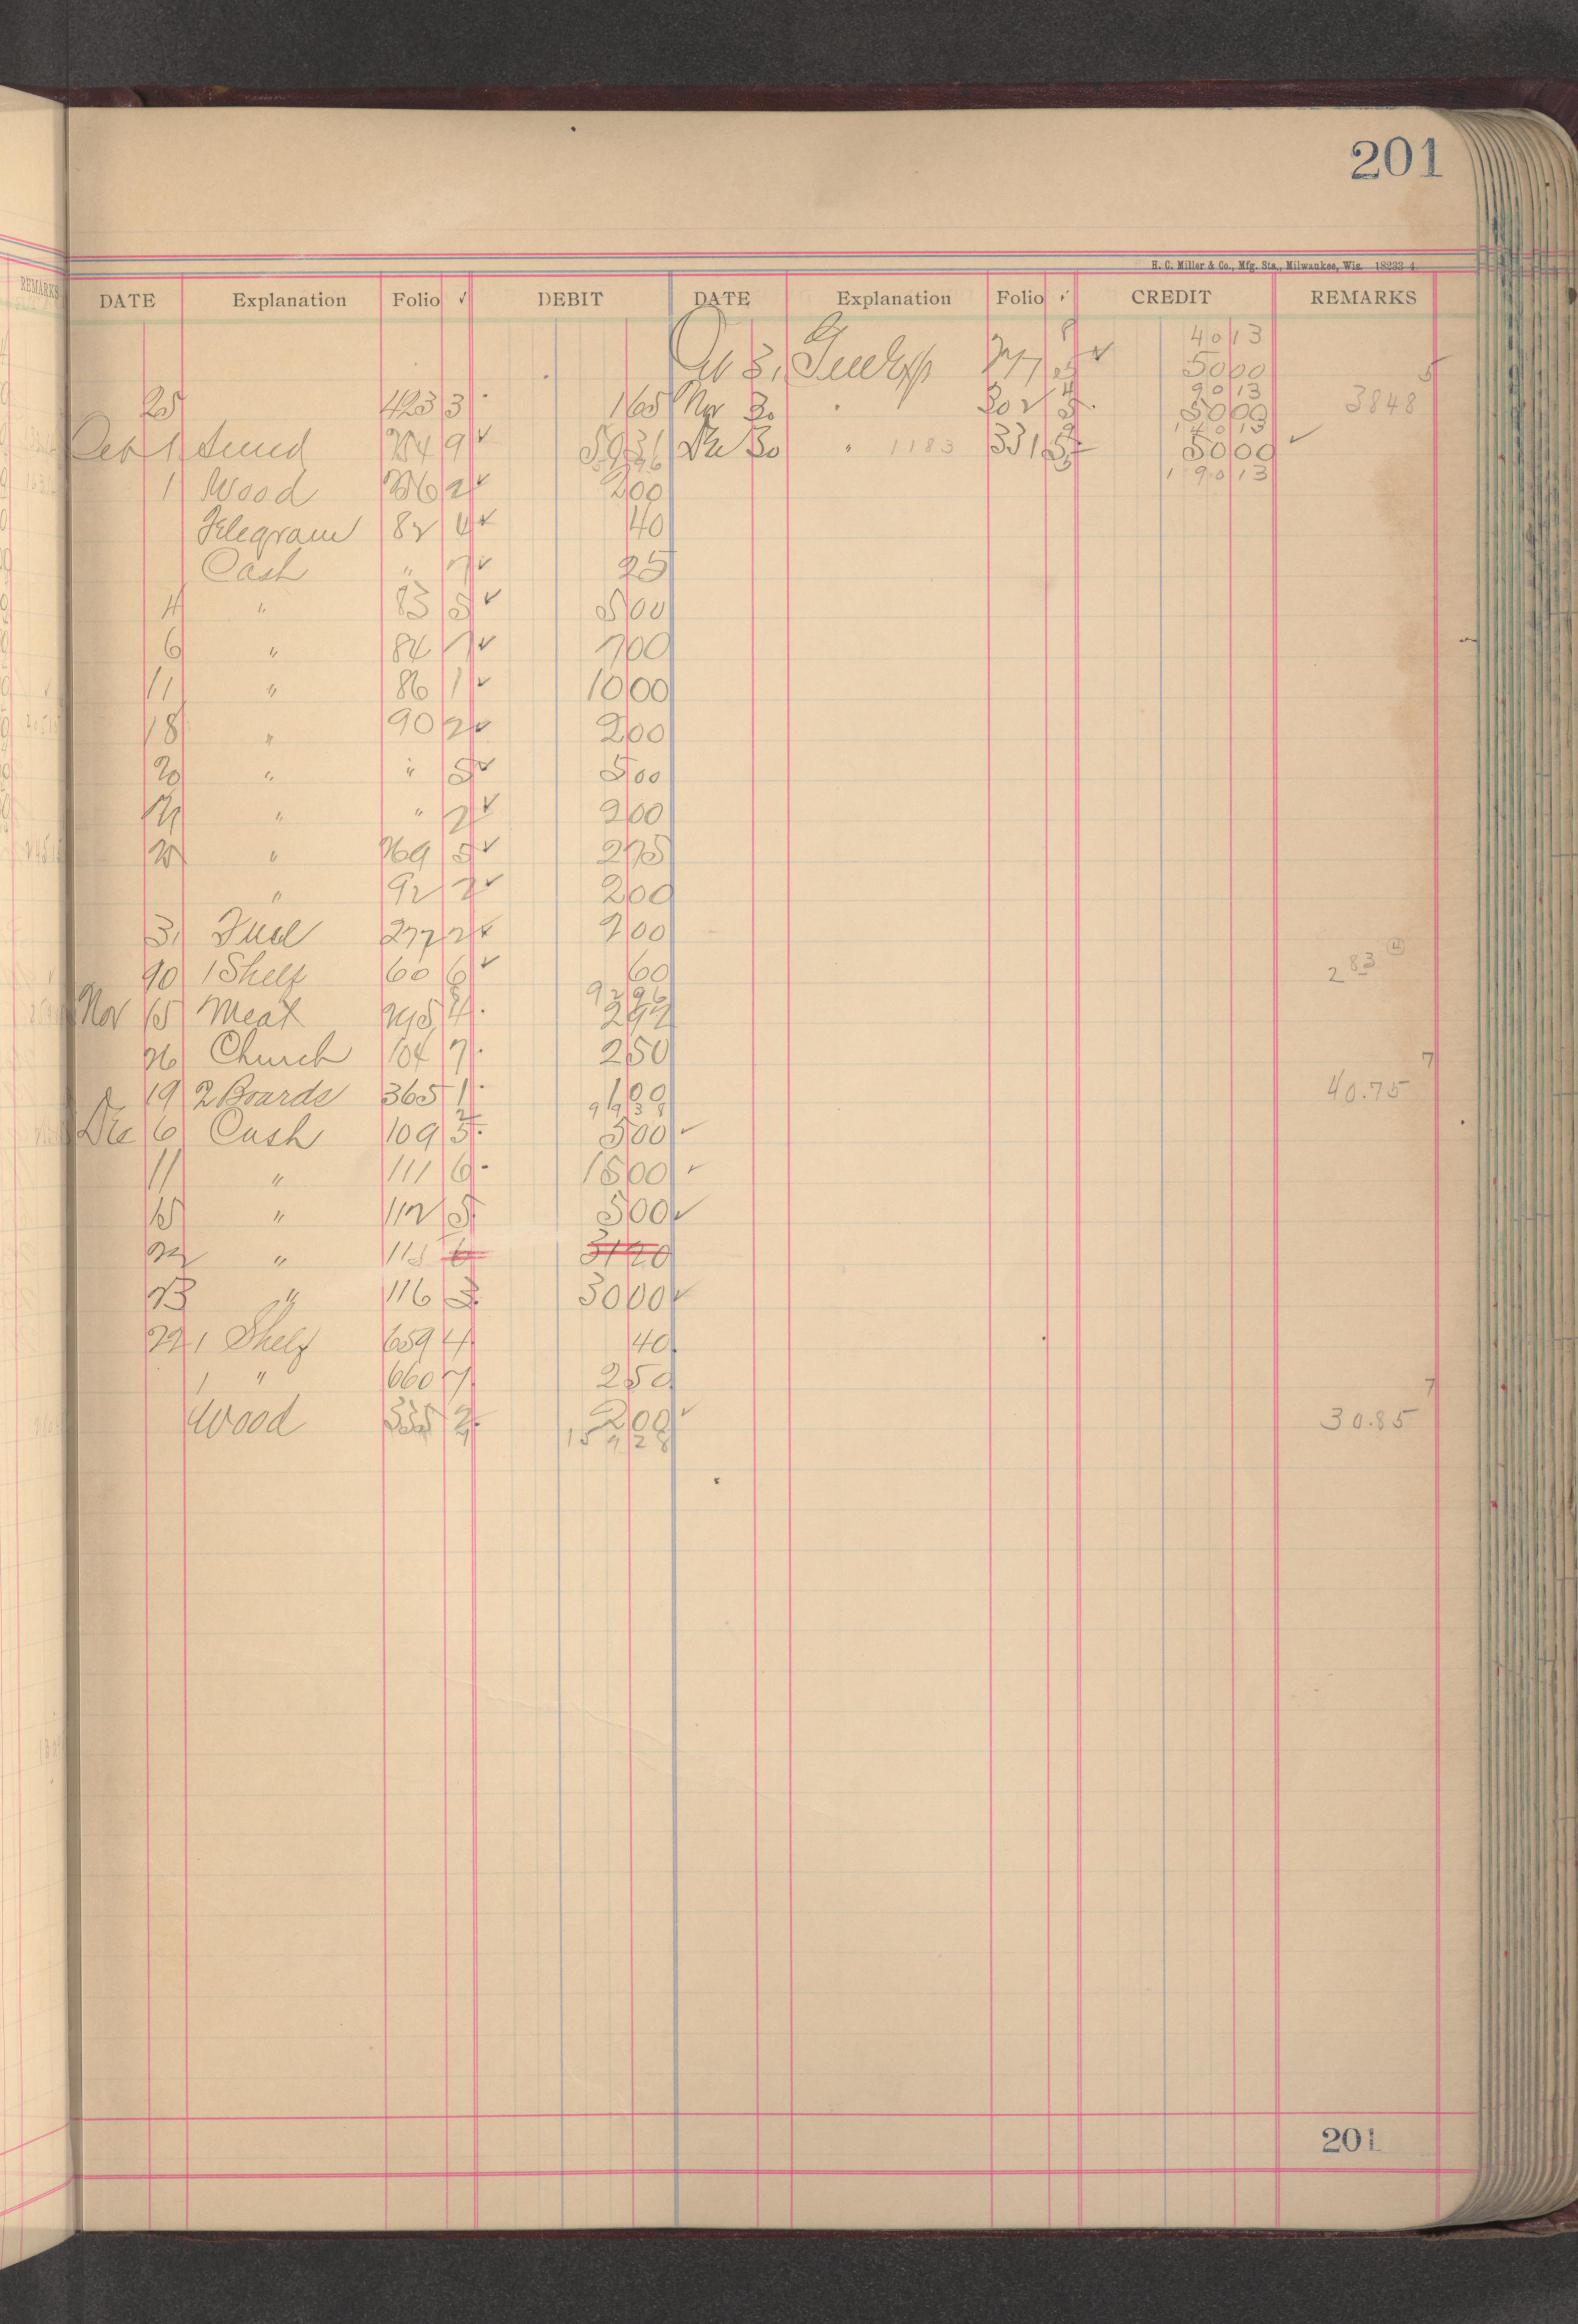 201
H. C. Miller & Co., Mfg. Sta., Milwaukee, Wis. 18233-4
REMARKS
DATE Explanation Folio ✓ DEBIT DATE Explanation Folio ✓ CREDIT REMARKS
8 40 13
Oct 31 277 5 ✓ 50 00 5
4 90 13
25 423 3 1 65 Nov 30 " 302 5 50 00 3848
9 140 13
Oct 1 Sund 254 9 ✓ 59 31 Dec 30 " 1183 331 5 50 00 ✓
190 13
1 Wood 256 2 ✓ 2 00
Telegram 82 4 ✓ 40
Cash " 7 ✓ 25
4 " 83 5 ✓ 5 00
6 " 84 7 ✓ 7 00
11 " 86 1 ✓ 10 00
18 " 90 2 ✓ 2 00
20 " " 5 ✓ 5 00
21 " " 2 ✓ 2 00
25 " 269 5 ✓ 2 75
" 92 2 ✓ 2 00
31 Fuel 277 2 ✓ 2 00
90 1 Shelf 60 6 ✓ 60 2 83 4
92 96
Nov 15 Meat 295 4 2 92
26 Church 104 7 2 50 7
19 2 Boards 365 1 1 00 40.75
99 38
Dec 6 Cash 109 5 5 00 ✓
11 " 111 6 15 00 ✓
15 " 112 5 5 00 ✓
22 " 115 6 31 20
23 " 116 3 30 00 ✓
22 1 Shelf 659 4 40
1 " 660 7 2 50 7
Wood 335 2 2 00 ✓ 30.85
159 28
201